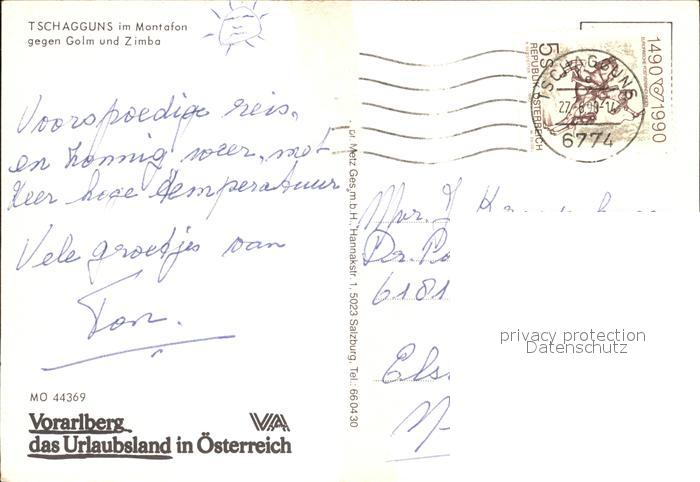 TSCHAGGUNS im Montafon
gegen Golm und Zimba
Voorspoedige reis,
en zonnig weer, met
zeer hoge temperatuur.
Vele groetjes van
Ton.
MO 44369
Vorarlberg VA
das Urlaubsland in Österreich
Dr. Metz Ges.m.b.H., Hannakstr. 1, 5023 Salzburg, Tel.: 66 04 30
5S
REPUBLIK ÖSTERREICH
1490 1990
TSCHAGGUNS
6774
Mvr. J.
Dr. Po
6181
Els.
privacy protection
Datenschutz